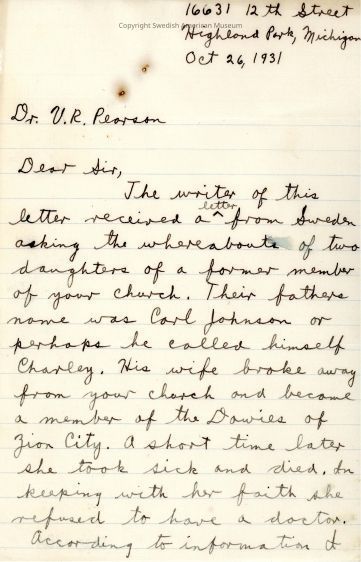 Copyright Swedish American Museum
16631 12th Street
Highland Park, Michigan
Oct 26, 1931
Dr. V.R. Pearson
Dear Sir,
The writer of this
letter
letter received a ^ from Sweden
asking the whereabouts of two
daughters of a former member
of your church. Their fathers
name was Carl Johnson or
perhaps he called himself
Charley. His wife broke away
from your church and became
a member of the Dowies of
Zion City. A short time later
she took sick and died. In
keeping with her faith she
refused to have a doctor.
According to information I